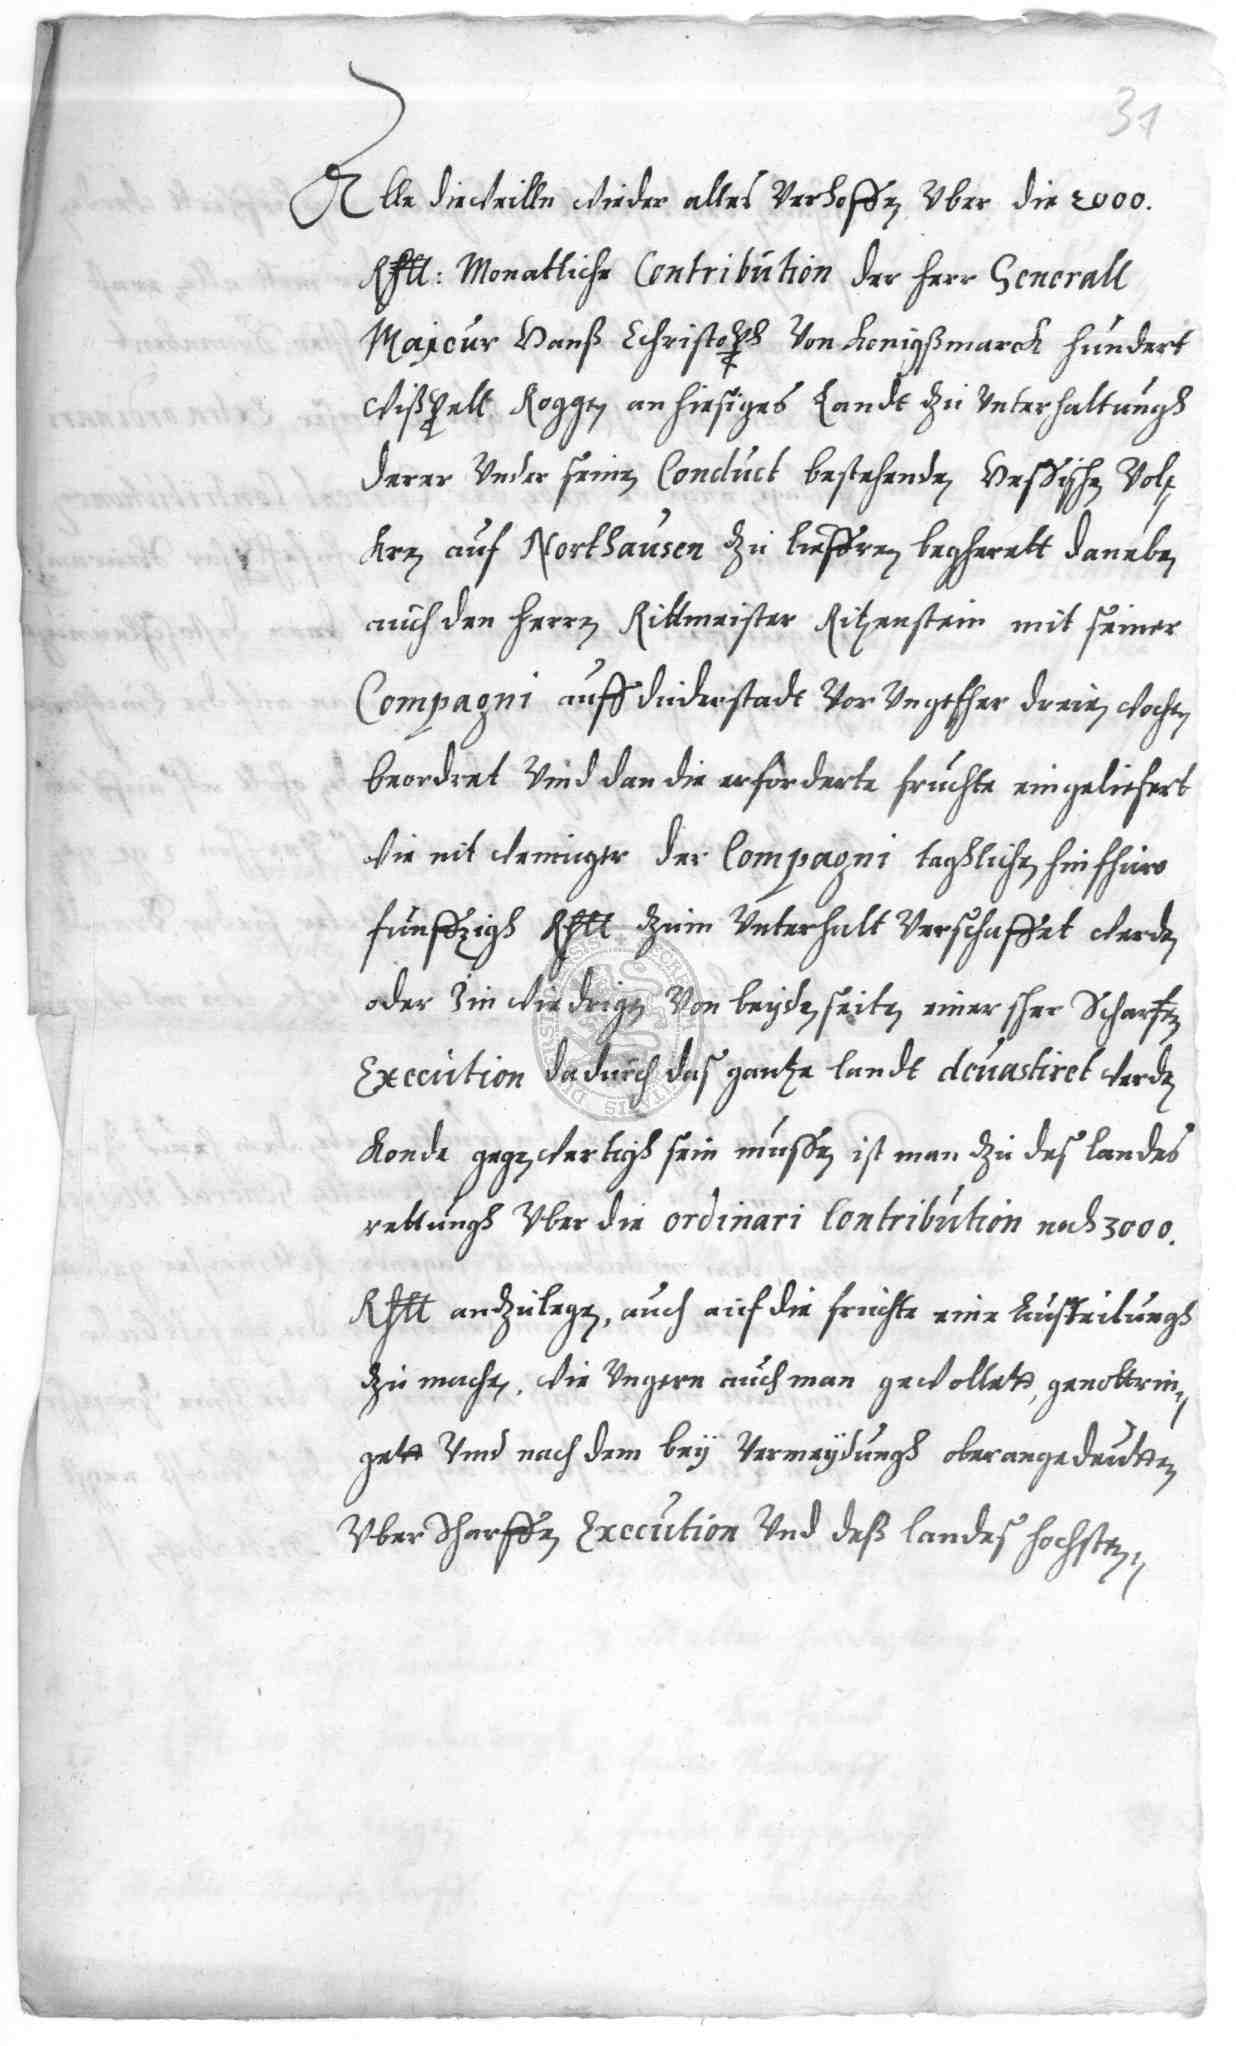 31
Alle dieweilln wieder alles verhoffen vber die 2000.
Rthll: Monatliche Contribution der herr Generall
Majeur Hanß Christoph von Konigßmarck hundert
wißpell Roggen an hiesiges Landt zu vnterhaltungh
derer vnder seinen Conduct bestehenden Hessischen Vol=
kren auf Northausen zu lieffren begherett daneben
auch den herren Rittmeister Ritzenstein mit seiner
Compagni auff duderstadt vor vngefher dreien wochen
beordret vnd dan die erforderte fruchte eingeliefert
wie nit weiniger der Compagni taghlichen hinfhuro
funffzigh Rthll zum vnterhalt verschaffet werden
oder im wiedrigen von beyden seiten einer sher scharfen
Execution dadurch das gantze landt deuastiret werden
konde gegenwertigh sein mussen ist man zu des landes
rettungh vber die ordinari Contribution noch 3000.
Rthll anzulegen, auch auf die fruchte eine Austeilungh
zu machen, wie vngern auch man gewollett, genottrin=
gett vnd nach dem bey vermeydungh oberangedeutten
vberscharffen Execution vnd deß landes hochsten